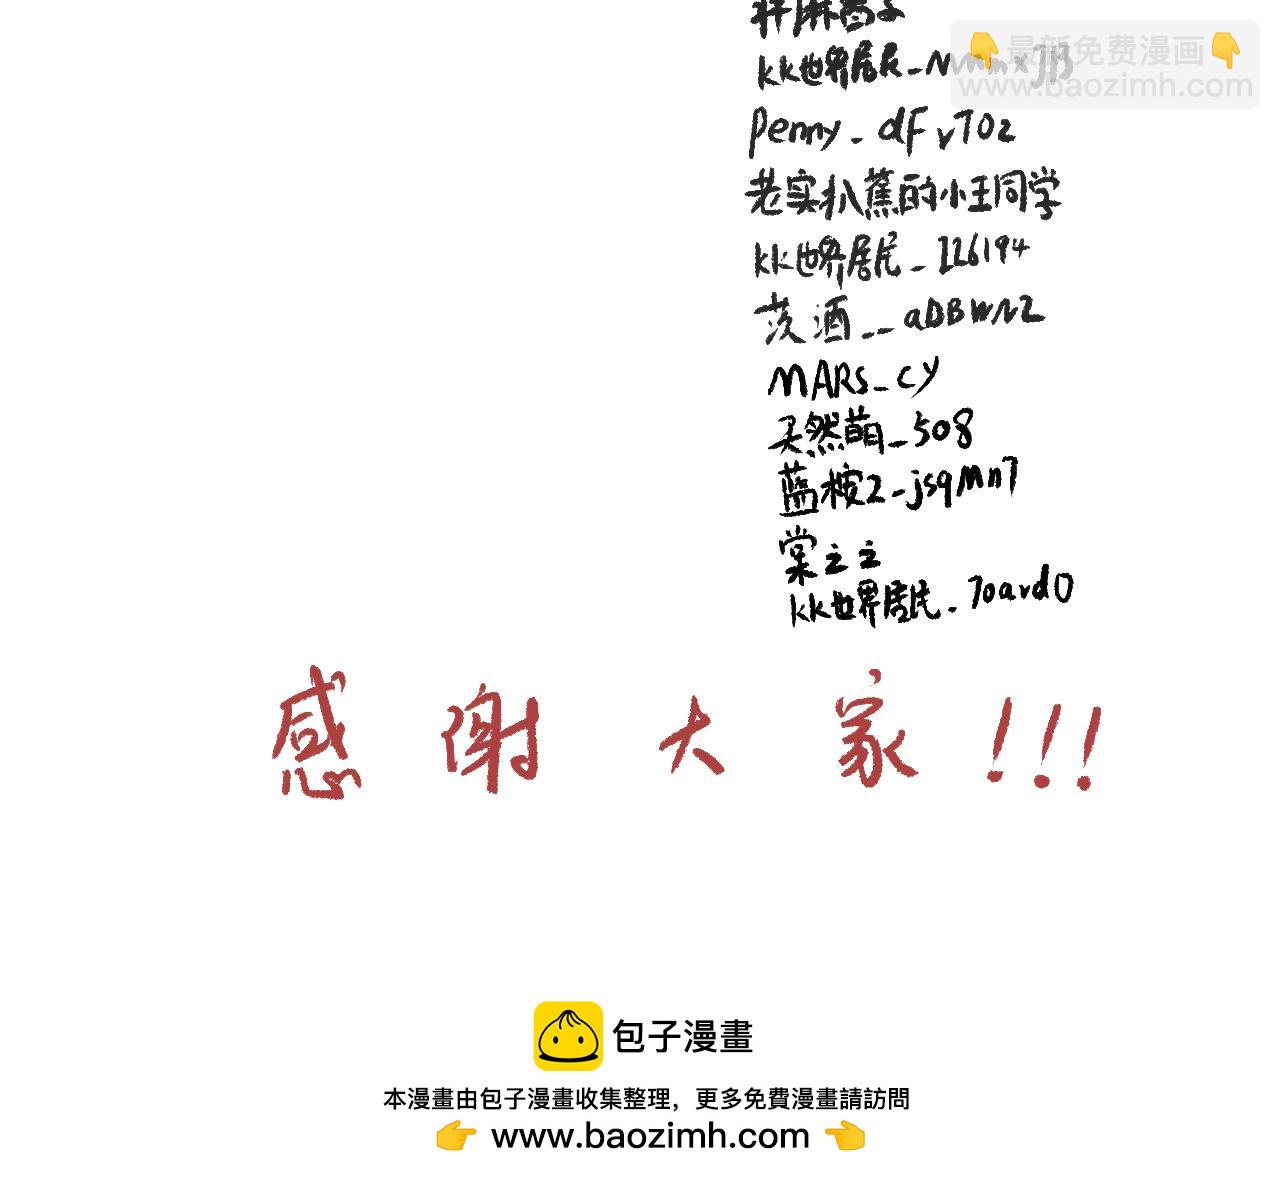 👇最新免费漫画👇
www.baozimh.com
kk世界居民_
Penny_dFv70z
老实扒蕉的小王同学
kk世界居民_226194
茨酒__aDBWNZ
MARS_CY
天然萌_508
蓝桉2_jsqMn7
棠之之
kk世界居民_7oavd0
感谢大家!!!
包子漫畫
本漫畫由包子漫畫收集整理，更多免費漫畫請訪問
👉 www.baozimh.com 👈